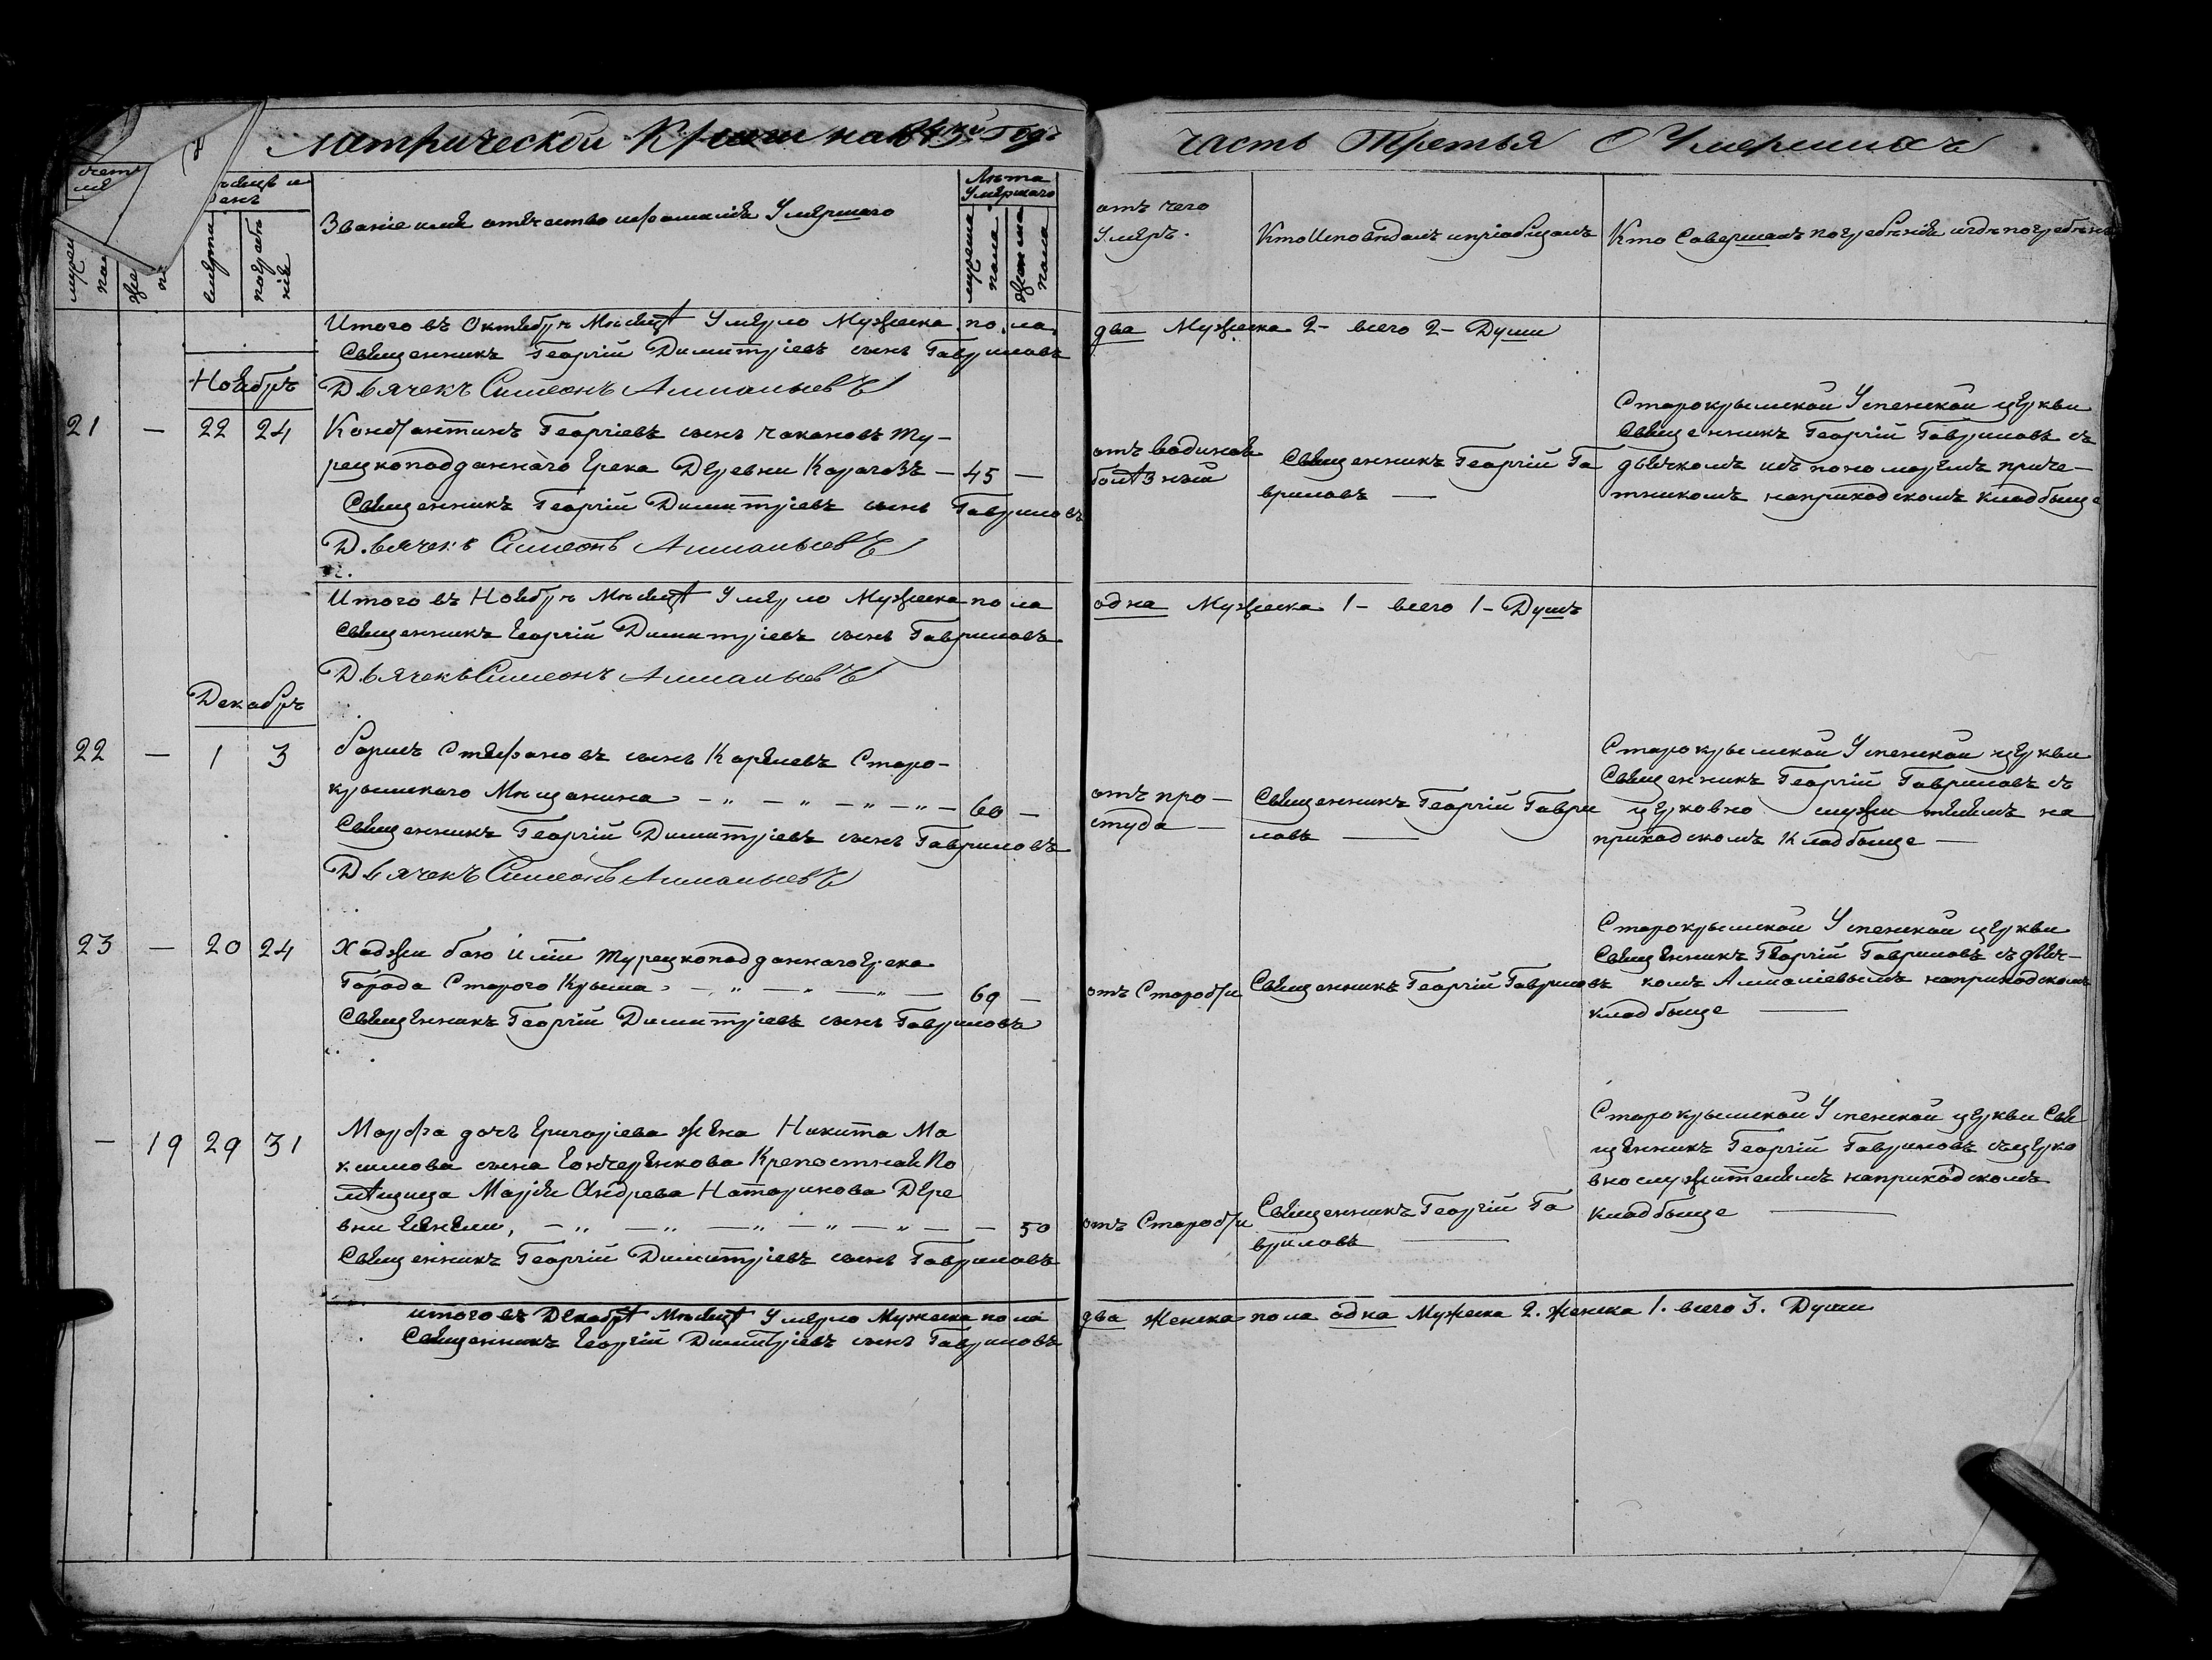 Метрической Книги на 1843й Годъ
часть Третья О Умершихъ
Званіе имя отечество и фамилія Умершаго
Лѣта
Умершаго
смерти
погребе
нія
мужеска
пола
женска
пола
отъ чего
Умеръ.
Кто Исповѣдалъ и пріобщалъ
Кто Совершалъ погребѣніе и гдѣ погребѣнъ
Итого въ Октябрѣ Мѣсяцѣ Умерло Мужеска пола
два Мужеска 2 - всего 2 - Души
Священникъ Георгій Димитріевъ сынъ Гавриловъ
Дьячекъ Симеонъ
Ноябрь
21 — 22 24
Константинъ Георгіевъ сынъ Чакановъ Ту-
рецкоподданнаго Грека Деревни Карагозъ — 45 —
Священникъ Георгій Димитріевъ сынъ Гавриловъ
Дьячекъ Симеонъ
отъ водяной
болѣзный
Священникъ Георгій Га
вриловъ —
Старокрымской Успенской церкви
Священникъ Георгій Гавриловъ съ
дьячкомъ и съ пономаремъ приче-
тникомъ наприходскомъ кладбище
Итого въ Ноябрѣ Мѣсяцѣ Умерло Мужеска пола
одна Мужеска 1 - всего 1 - Душъ
Священникъ Георгій Димитріевъ сынъ Гавриловъ
Дьячекъ Симеонъ
Декабрь
22 — 1 3
Борисъ Стефановъ сынъ Старо-
крымскаго Мѣщанина — „ — „ — „ — „ — 60 —
Священникъ Георгій Димитріевъ сынъ Гавриловъ
Дьячекъ Симеонъ
отъ про —
студа —
Священникъ Георгій Гаври
ловъ —
Старокрымской Успенской церкви
Священникъ Георгій Гавриловъ съ
церковно служителемъ на
приходскомъ Кладбище —
23 — 20 24
Хаджи Турецкоподданнаго Грека
Города Старого Крыма — „ — „ — „ — 69 —
Священникъ Георгій Димитріевъ сынъ Гавриловъ
отъ Старости
Священникъ Георгій Гавриловъ
Старокрымской Успенской церкви
Священникъ Георгій Гавриловъ съ дьяч-
комъ наприходскомъ
кладбище —
— 19 29 31
Марфа дочъ Григоріева жена Никита Ма
ксимова сына Гончеренкова Крепостная По
мѣщица Марія Андрева Дере
вни — „ — „ — „ — „ — „ — — 50
Священникъ Георгій Димитріевъ сынъ Гавриловъ
отъ Старости
Священникъ Георгій Га
вриловъ —
Старокрымской Успенской церкви Свя
щенникъ Георгій Гавриловъ съ церко
вно служителемъ наприходскомъ
кладбище —
итого въ Декабрѣ Мѣсяцѣ Умерло Мужеска пола
два Женска пола одна Мужеска 2. Женска 1. всего 3. Души
Священникъ Георгій Димитріевъ сынъ Гавриловъ